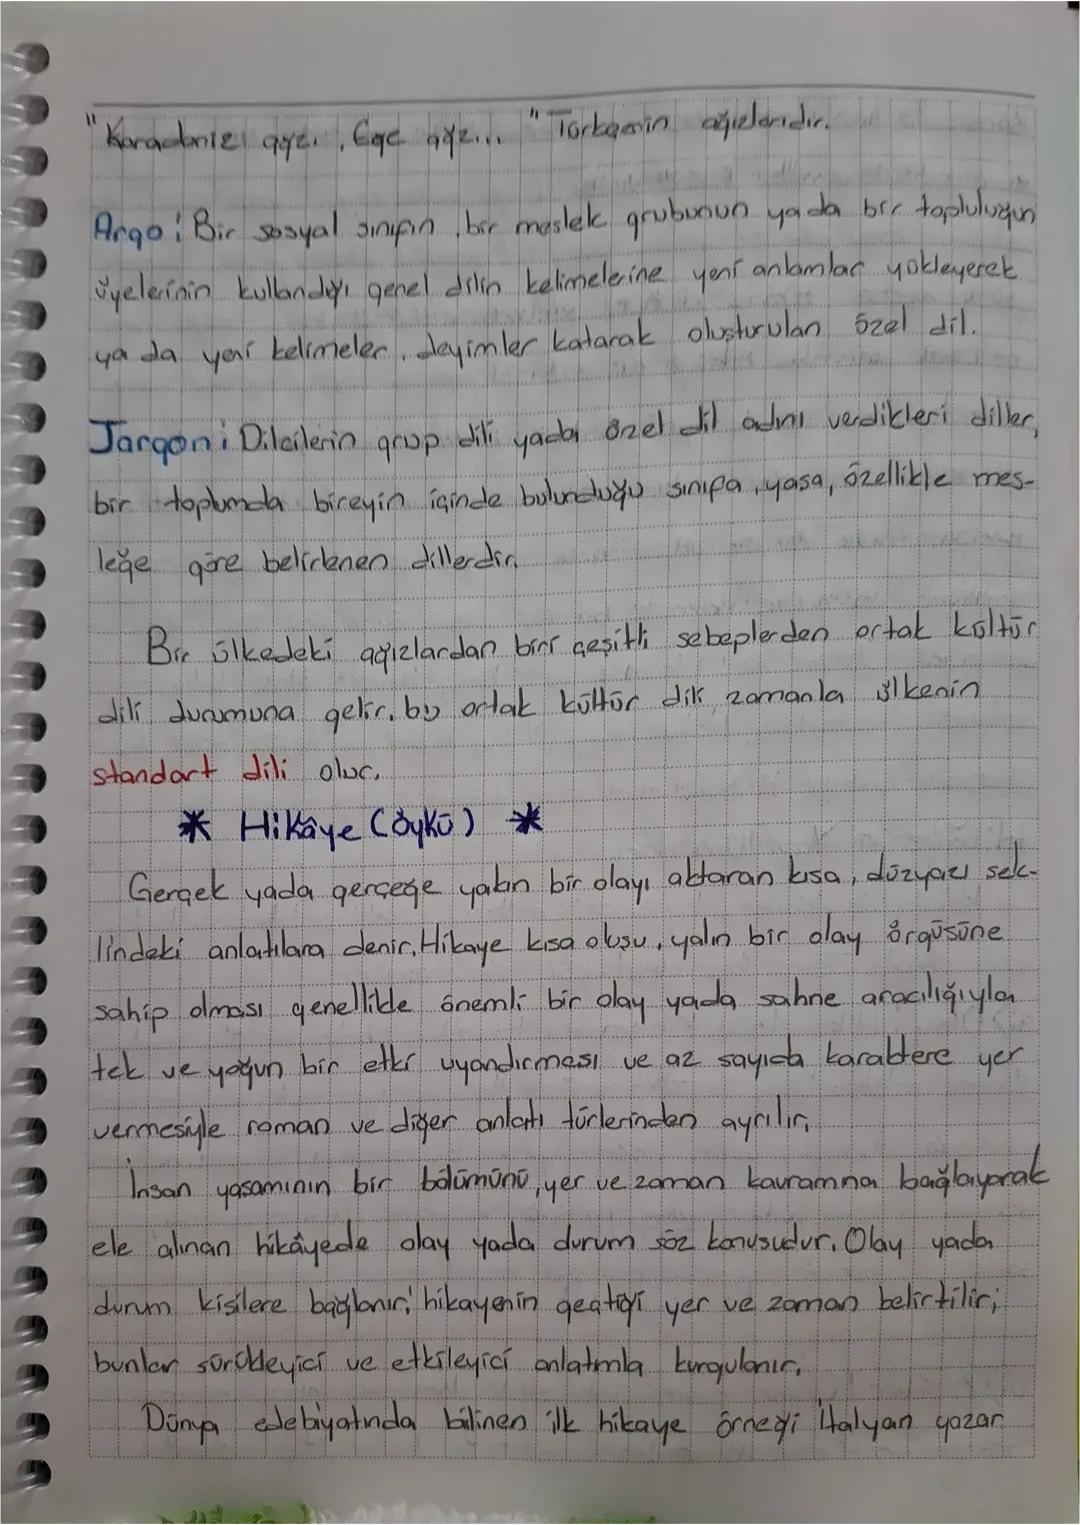 "Karadeniz ağzı, Ege ağzı... " Türkçenin ağızlarıdır.
Argo: Bir sosyal sınıfın, bir meslek grubunun ya da bir topluluğun
üyelerinin kullandığı genel dilin kelimelerine yeni anlamlar yükleyerek
ya da yeni kelimeler, deyimler katarak oluşturulan özel dil.
Jargon: Dilcilerin grup dili yada özel dil adını verdikleri diller,
bir toplumda bireyin içinde bulunduğu sınıfa, yaşa, özellikle mes-
leğe göre belirlenen dillerdir.
Bir ülkedeki ağızlardan biri çeşitli sebeplerden ortak kültür
dili durumuna gelir. bu ortak kültür dili zamanla ülkenin
standart dili olur.
* Hikâye (öykü) *
Gerçek yada gerçeğe yakın bir olayı aktaran kısa, düzyazı şek-
lindeki anlatılara denir. Hikaye kısa oluşu, yalın bir olay örgüsüne
sahip olması genellikle önemli bir olay yada sahne aracılığıyla
tek ve yoğun bir etki uyandırması ve az sayıda karaktere yer
vermesiyle roman ve diğer anlatı türlerinden ayrılır.
İnsan yaşamının bir bölümünü, yer ve zaman kavramına bağlayarak
ele alınan hikâyede olay yada durum söz konusudur. Olay yada
durum kişilere bağlanır; hikayenin geçtiği yer ve zaman belirtilir;
bunlar sürükleyici ve etkileyici anlatımla kurgulanır.
Dünya edebiyatında bilinen ilk hikaye örneği İtalyan yazar